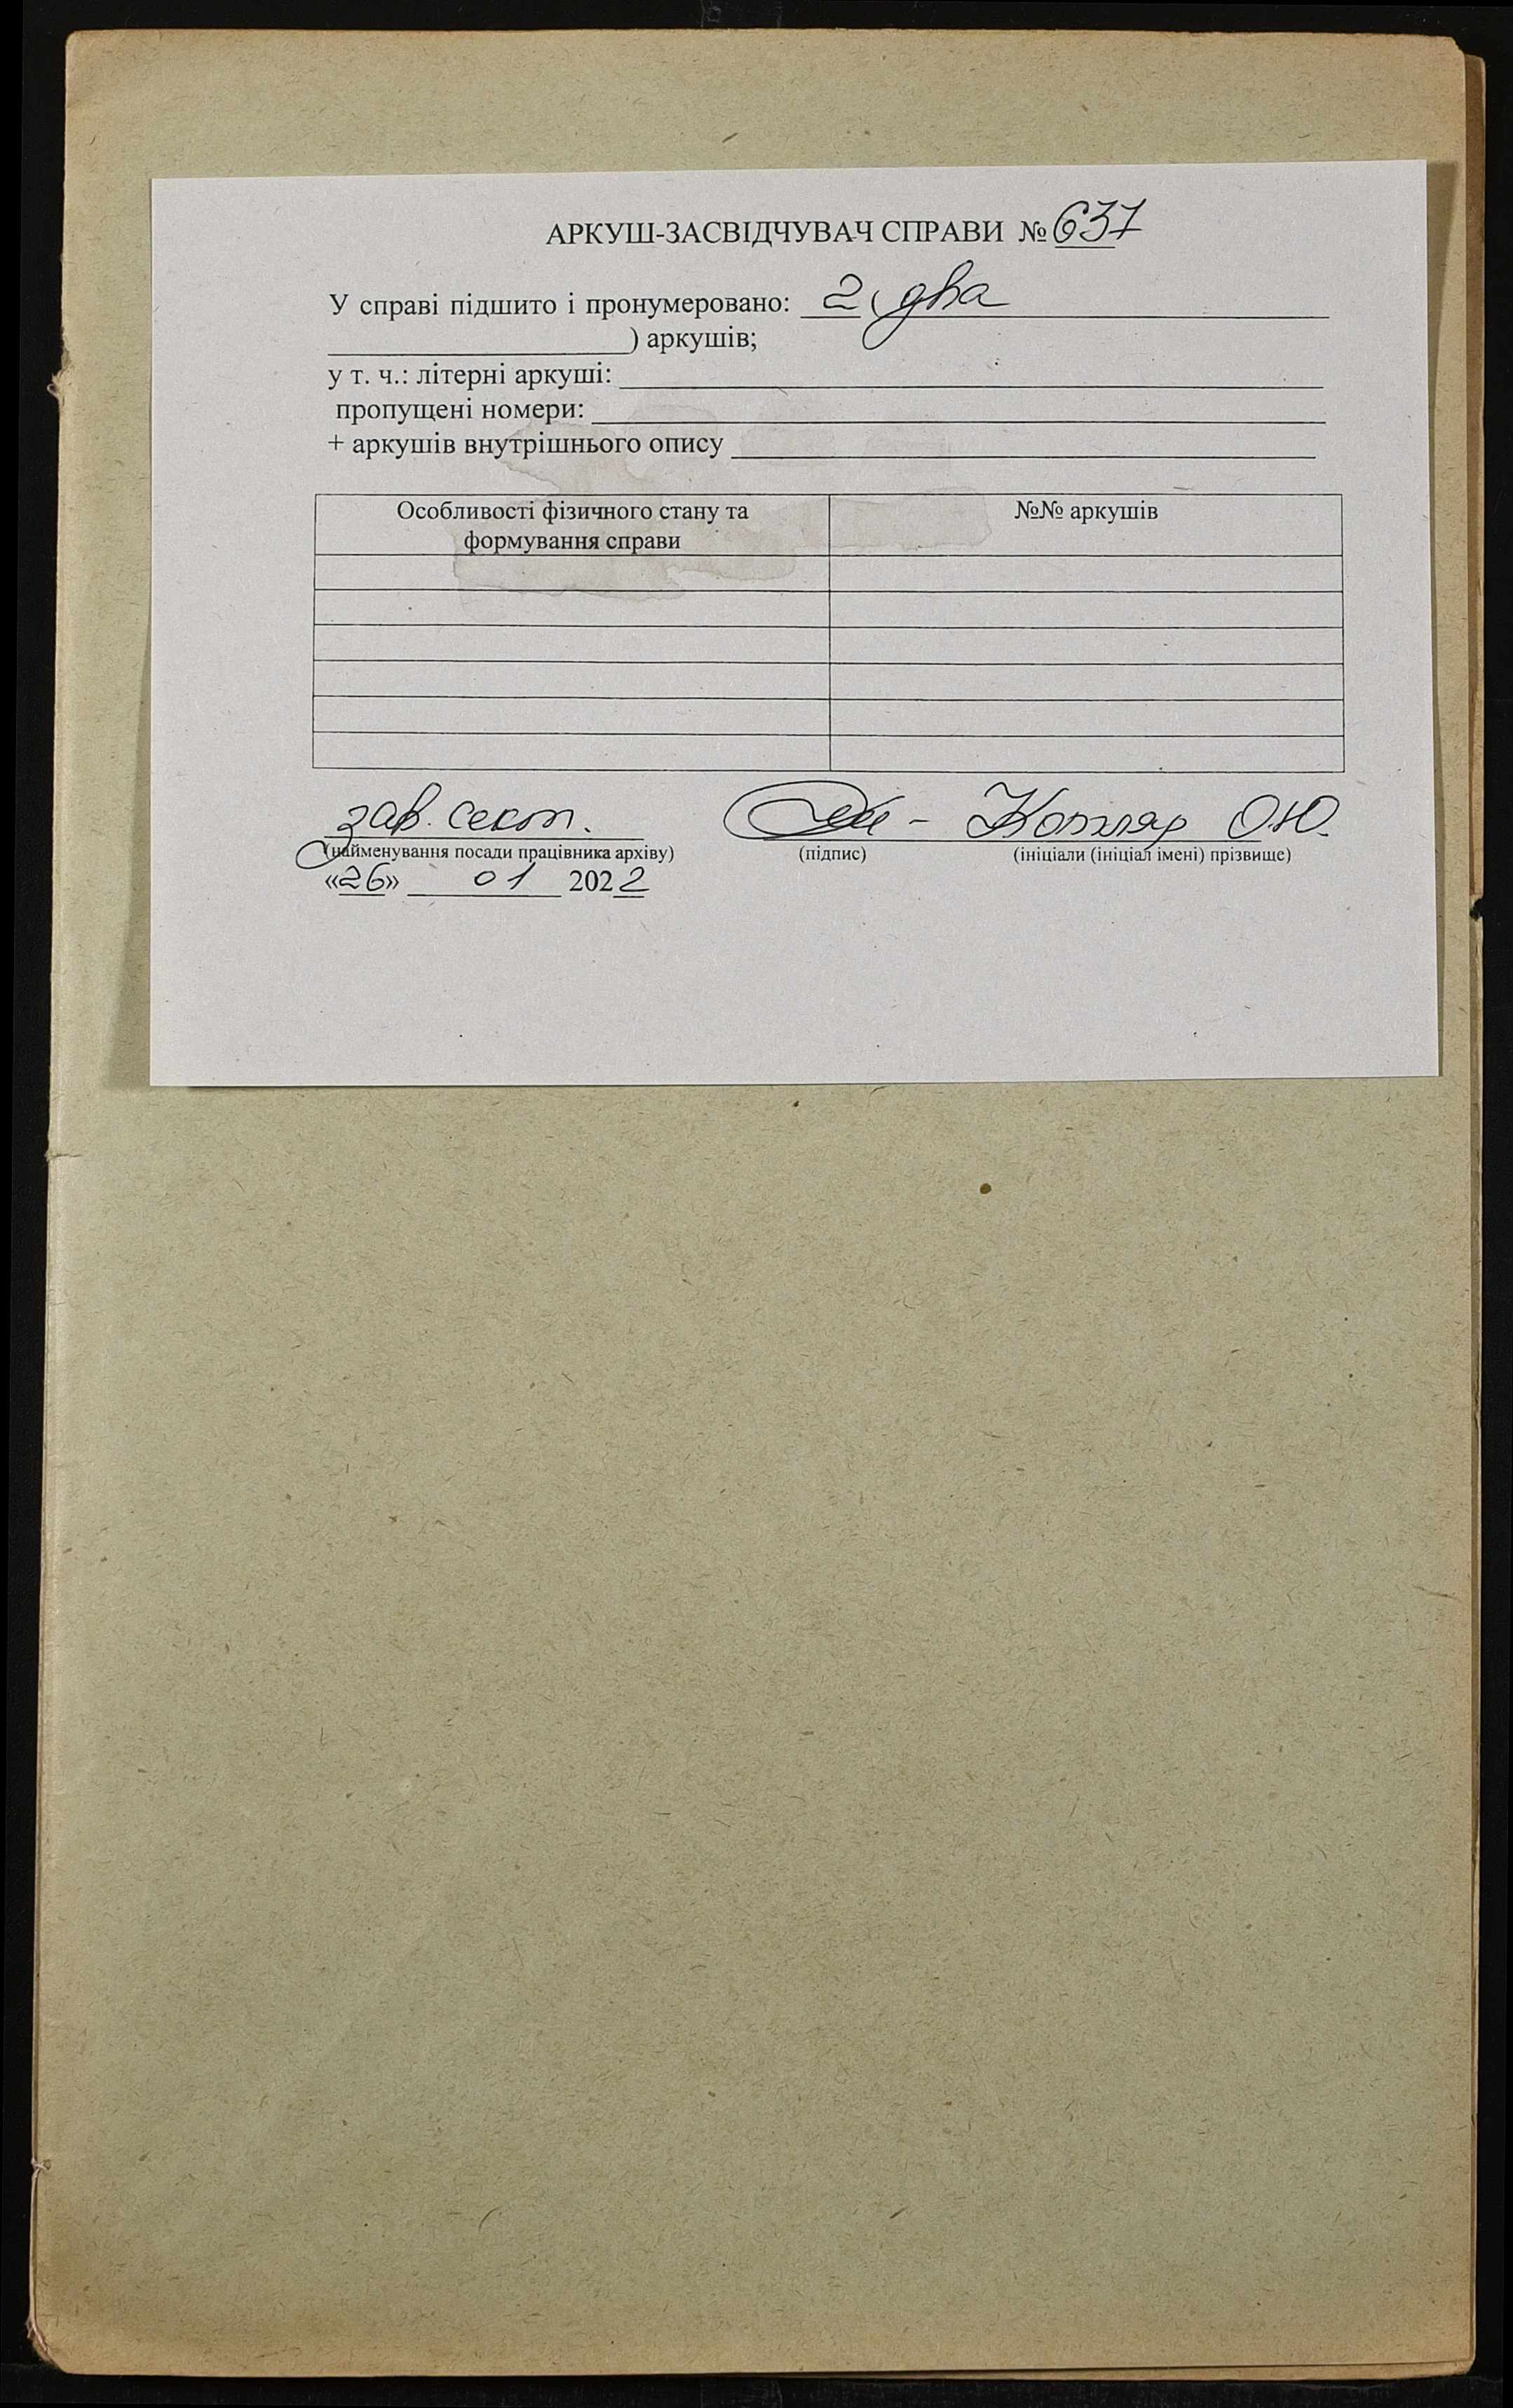 АРКУШ-ЗАСВІДЧУВАЧ СПРАВИ № 637
У справі підшито і пронумеровано: 2 (два
) аркушів;
у т. ч.: літерні аркуші:
пропущені номери:
+ аркушів внутрішнього опису
Особливості фізичного стану та формування справи №№ аркушів
зав. сект. Котляр О.Ю.
(найменування посади працівника архіву) (підпис) (ініціали (ініціал імені) прізвище)
«26» 01 2022